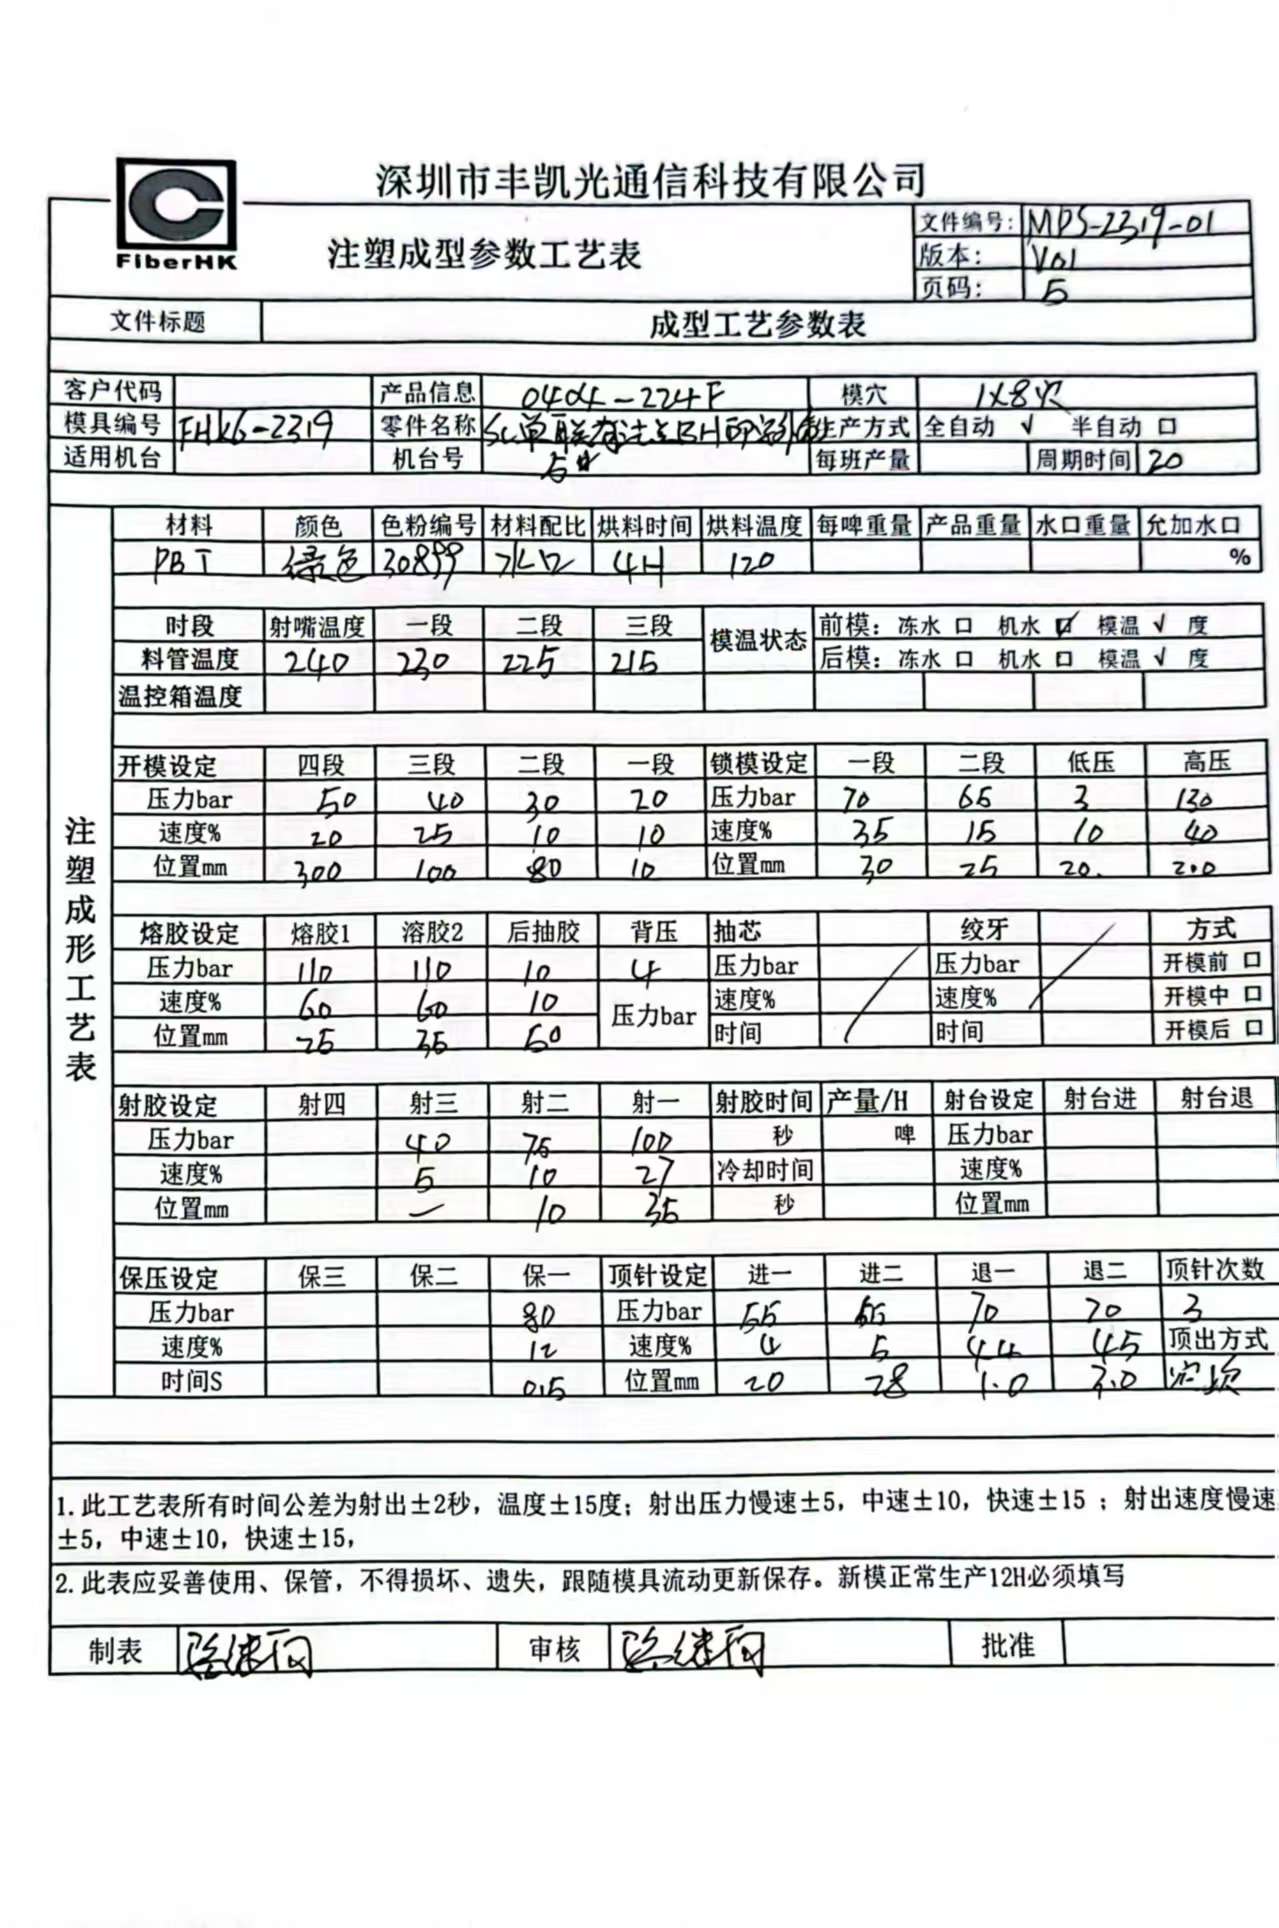 深圳市丰凯光通信科技有限公司
FiberHK
注塑成型参数工艺表
文件编号: MPS-2319-01
版本: V01
页码: 5
文件标题 成型工艺参数表
客户代码 产品信息 0404-224F 模穴 1X8穴
模具编号 FHK6-2319 零件名称 SC单联 生产方式 全自动 √ 半自动 口
适用机台 机台号 5# 每班产量 周期时间 20
材料 颜色 色粉编号 材料配比 烘料时间 烘料温度 每啤重量 产品重量 水口重量 允加水口
PBT 绿色 30899 水口 4H 120 %
时段 射嘴温度 一段 二段 三段 模温状态 前模: 冻水 口 机水 口 模温 √ 度
料管温度 240 230 225 215 后模: 冻水 口 机水 口 模温 √ 度
温控箱温度
注塑成形工艺表
开模设定 四段 三段 二段 一段 锁模设定 一段 二段 低压 高压
压力bar 50 40 30 20 压力bar 70 65 3 130
速度% 20 25 10 10 速度% 35 15 10 40
位置mm 300 100 80 10 位置mm 30 25 20. 2.0
熔胶设定 熔胶1 溶胶2 后抽胶 背压 抽芯 绞牙 方式
压力bar 110 110 10 4 压力bar 压力bar 开模前 口
速度% 60 60 10 压力bar 速度% 速度% 开模中 口
位置mm 25 35 50 时间 时间 开模后 口
射胶设定 射四 射三 射二 射一 射胶时间 产量/H 射台设定 射台进 射台退
压力bar 40 75 100 秒 啤 压力bar
速度% 5 10 27 冷却时间 速度%
位置mm — 10 35 秒 位置mm
保压设定 保三 保二 保一 顶针设定 进一 进二 退一 退二 顶针次数
压力bar 80 压力bar 55 55 70 70 3
速度% 12 速度% 4 5 44 45 顶出方式
时间S 0.5 位置mm 20 28 1.0 2.0
1.此工艺表所有时间公差为射出±2秒，温度±15度；射出压力慢速±5，中速±10，快速±15 ；射出速度慢速
±5，中速±10，快速±15，
2.此表应妥善使用、保管，不得损坏、遗失，跟随模具流动更新保存。新模正常生产12H必须填写
制表 审核 批准